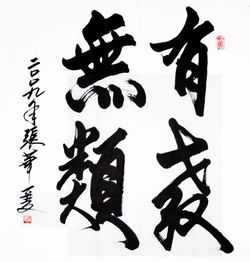 有教
無類
二〇〇九年張華夏